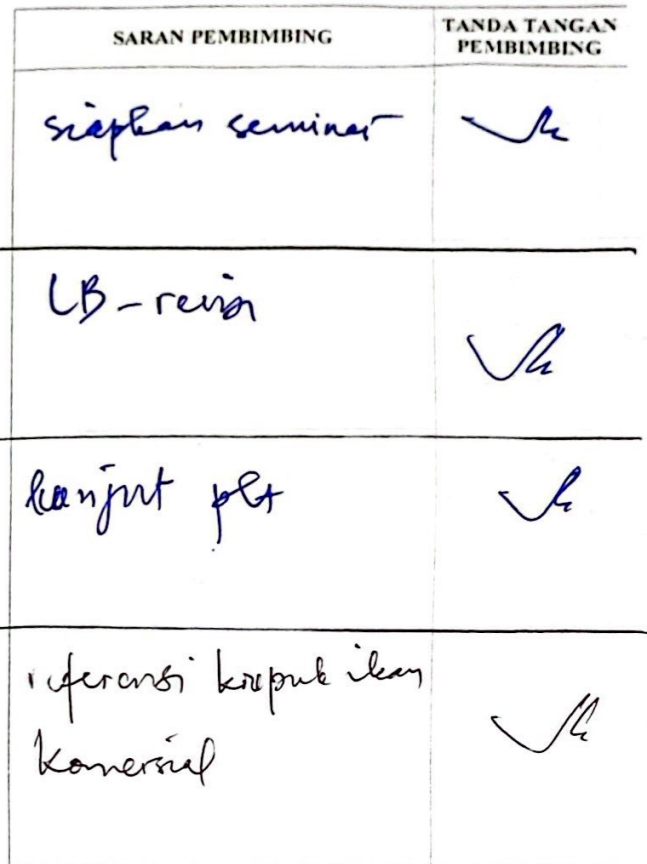 SARAN PEMBIMBING
TANDA TANGAN
PEMBIMBING
siapkan seminar
LB - revisi
lanjut plt
referensi krupuk ikan
komersial